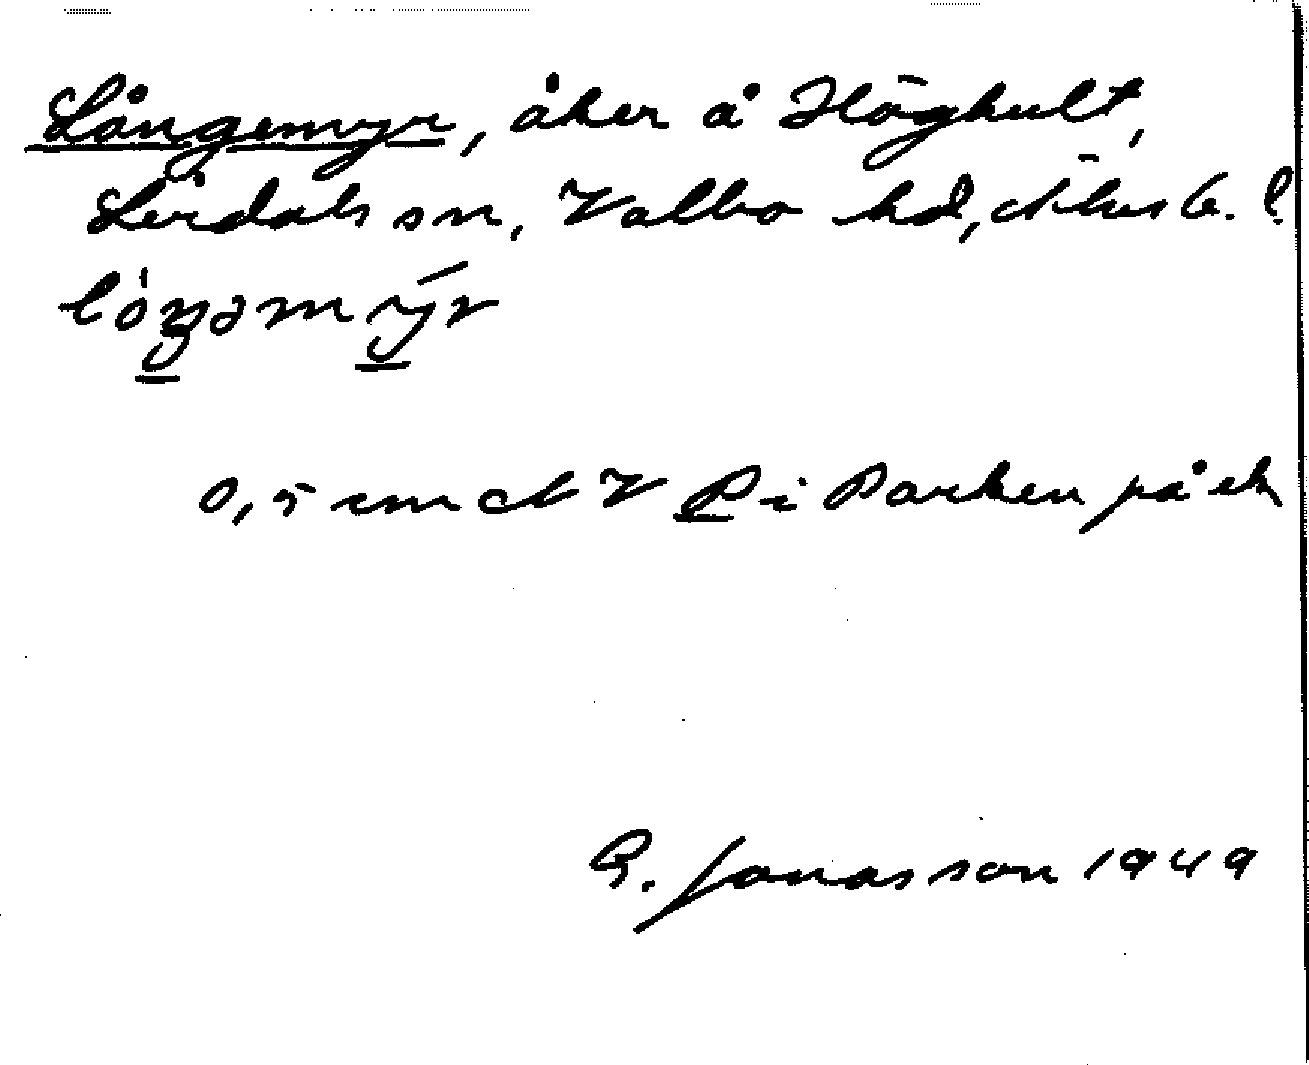 Långemyr, åker å Höghult,
Lerdals sn, Valbo hd, Älvsb. l.
lóŋəmýr
0,5 cm NV P i Parken på ek
G. Jonasson 1949